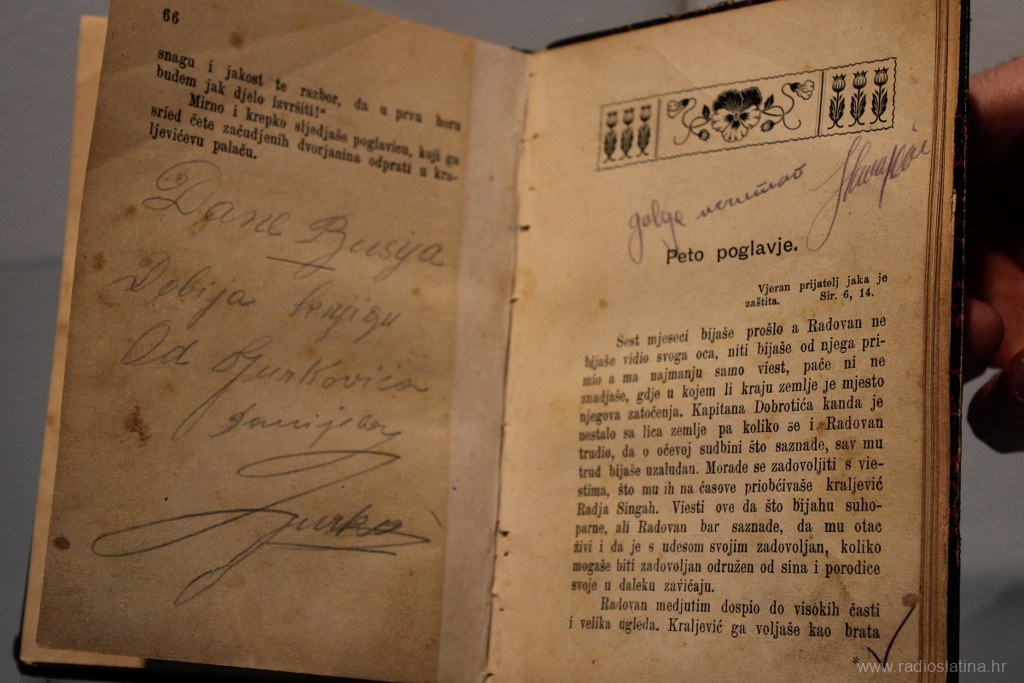 66
snagu i jakost te razbor, da u prvu horu
budem jak djelo izvršiti!“
Mirno i krepko sljedjaše poglavicu, koji ga
sried čete začudjenih dvorjanina odprati u kra-
ljevićevu palaču.
Dane Busija
Debija knjigu
Od Gjurkovića
Gjurko
Peto poglavje.
Vjeran prijatelj jaka je
zaštita. Sir. 6, 14.
Šest mjeseci bijaše prošlo a Radovan ne
bijaše vidio svoga oca, niti bijaše od njega pri-
mio a ma najmanju samo viest, pače ni ne
znadjaše, gdje u kojem li kraju zemlje je mjesto
njegova zatočenja. Kapitana Dobrotića kanda je
nestalo sa lica zemlje pa koliko se i Radovan
trudio, da o očevoj sudbini što saznade, sav mu
trud bijaše uzaludan. Morade se zadovoljiti s vie-
stima, što mu ih na časove priobćivaše kraljević
Radja Singah. Viesti ove da što bijahu suho-
parne, ali Radovan bar saznade, da mu otac
živi i da je s udesom svojim zadovoljan, koliko
mogaše biti zadovoljan odružen od sina i porodice
svoje u daleku zavičaju.
Radovan medjutim dospio do visokih časti
i velika ugleda. Kraljević ga voljaše kao brata
*
www.radioslatina.hr